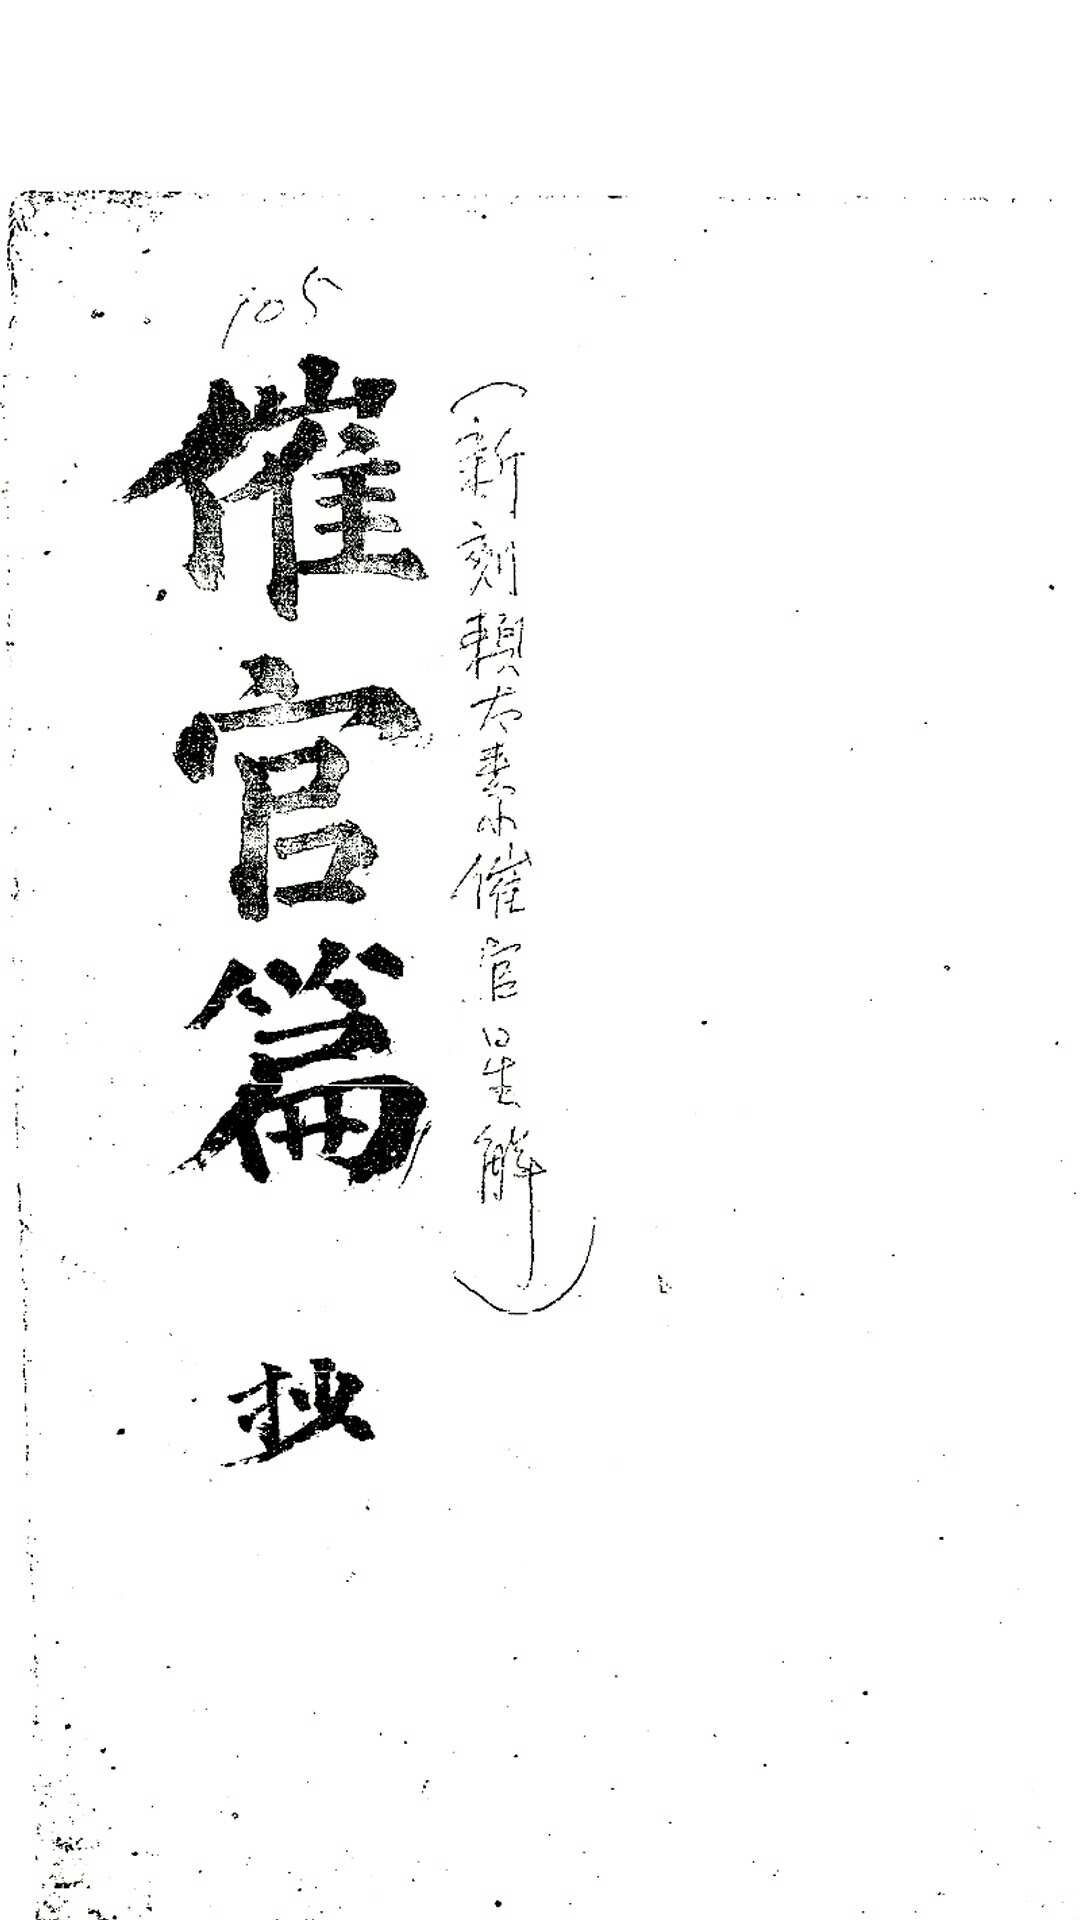 105
（新刻賴太素催官星解）
催官篇
抄